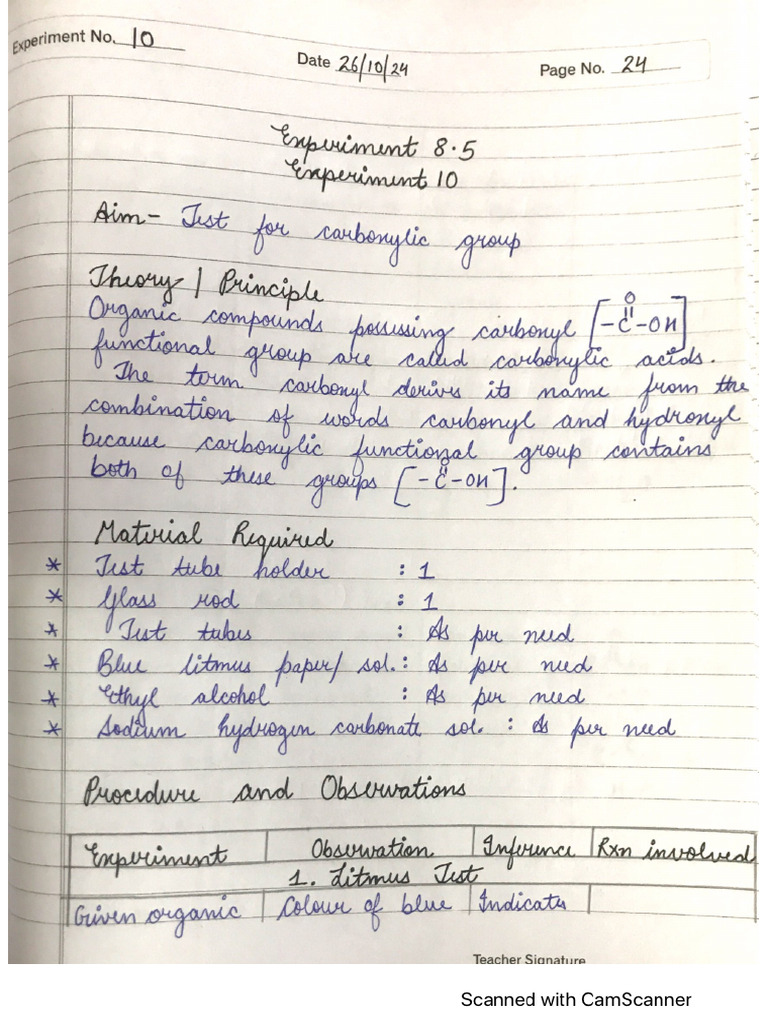 Experiment No. 10
Date 26/10/24
Page No. 24
Experiment 8.5
Experiment 10
Aim - Test for carbonylic group
Theory | Principle
Organic compounds possessing carbonyl [-C-OH]
O
functional group are called carbonylic acids.
The term carbonyl derives its name from the
combination of words carbonyl and hydronyl
because carbonylic functional group contains
both of these groups [-C-OH].
O
Material Required
* Test tube holder : 1
* Glass rod : 1
* Test tubes : As per need
* Blue litmus paper/ sol. : As per need
* Ethyl alcohol : As per need
* Sodium hydrogen carbonate sol. : As per need
Procedure and Observations
Experiment | Observation | Inference | Rxn involved
1. Litmus Test
Given organic | Colour of blue | Indicates
Teacher Signature
Scanned with CamScanner